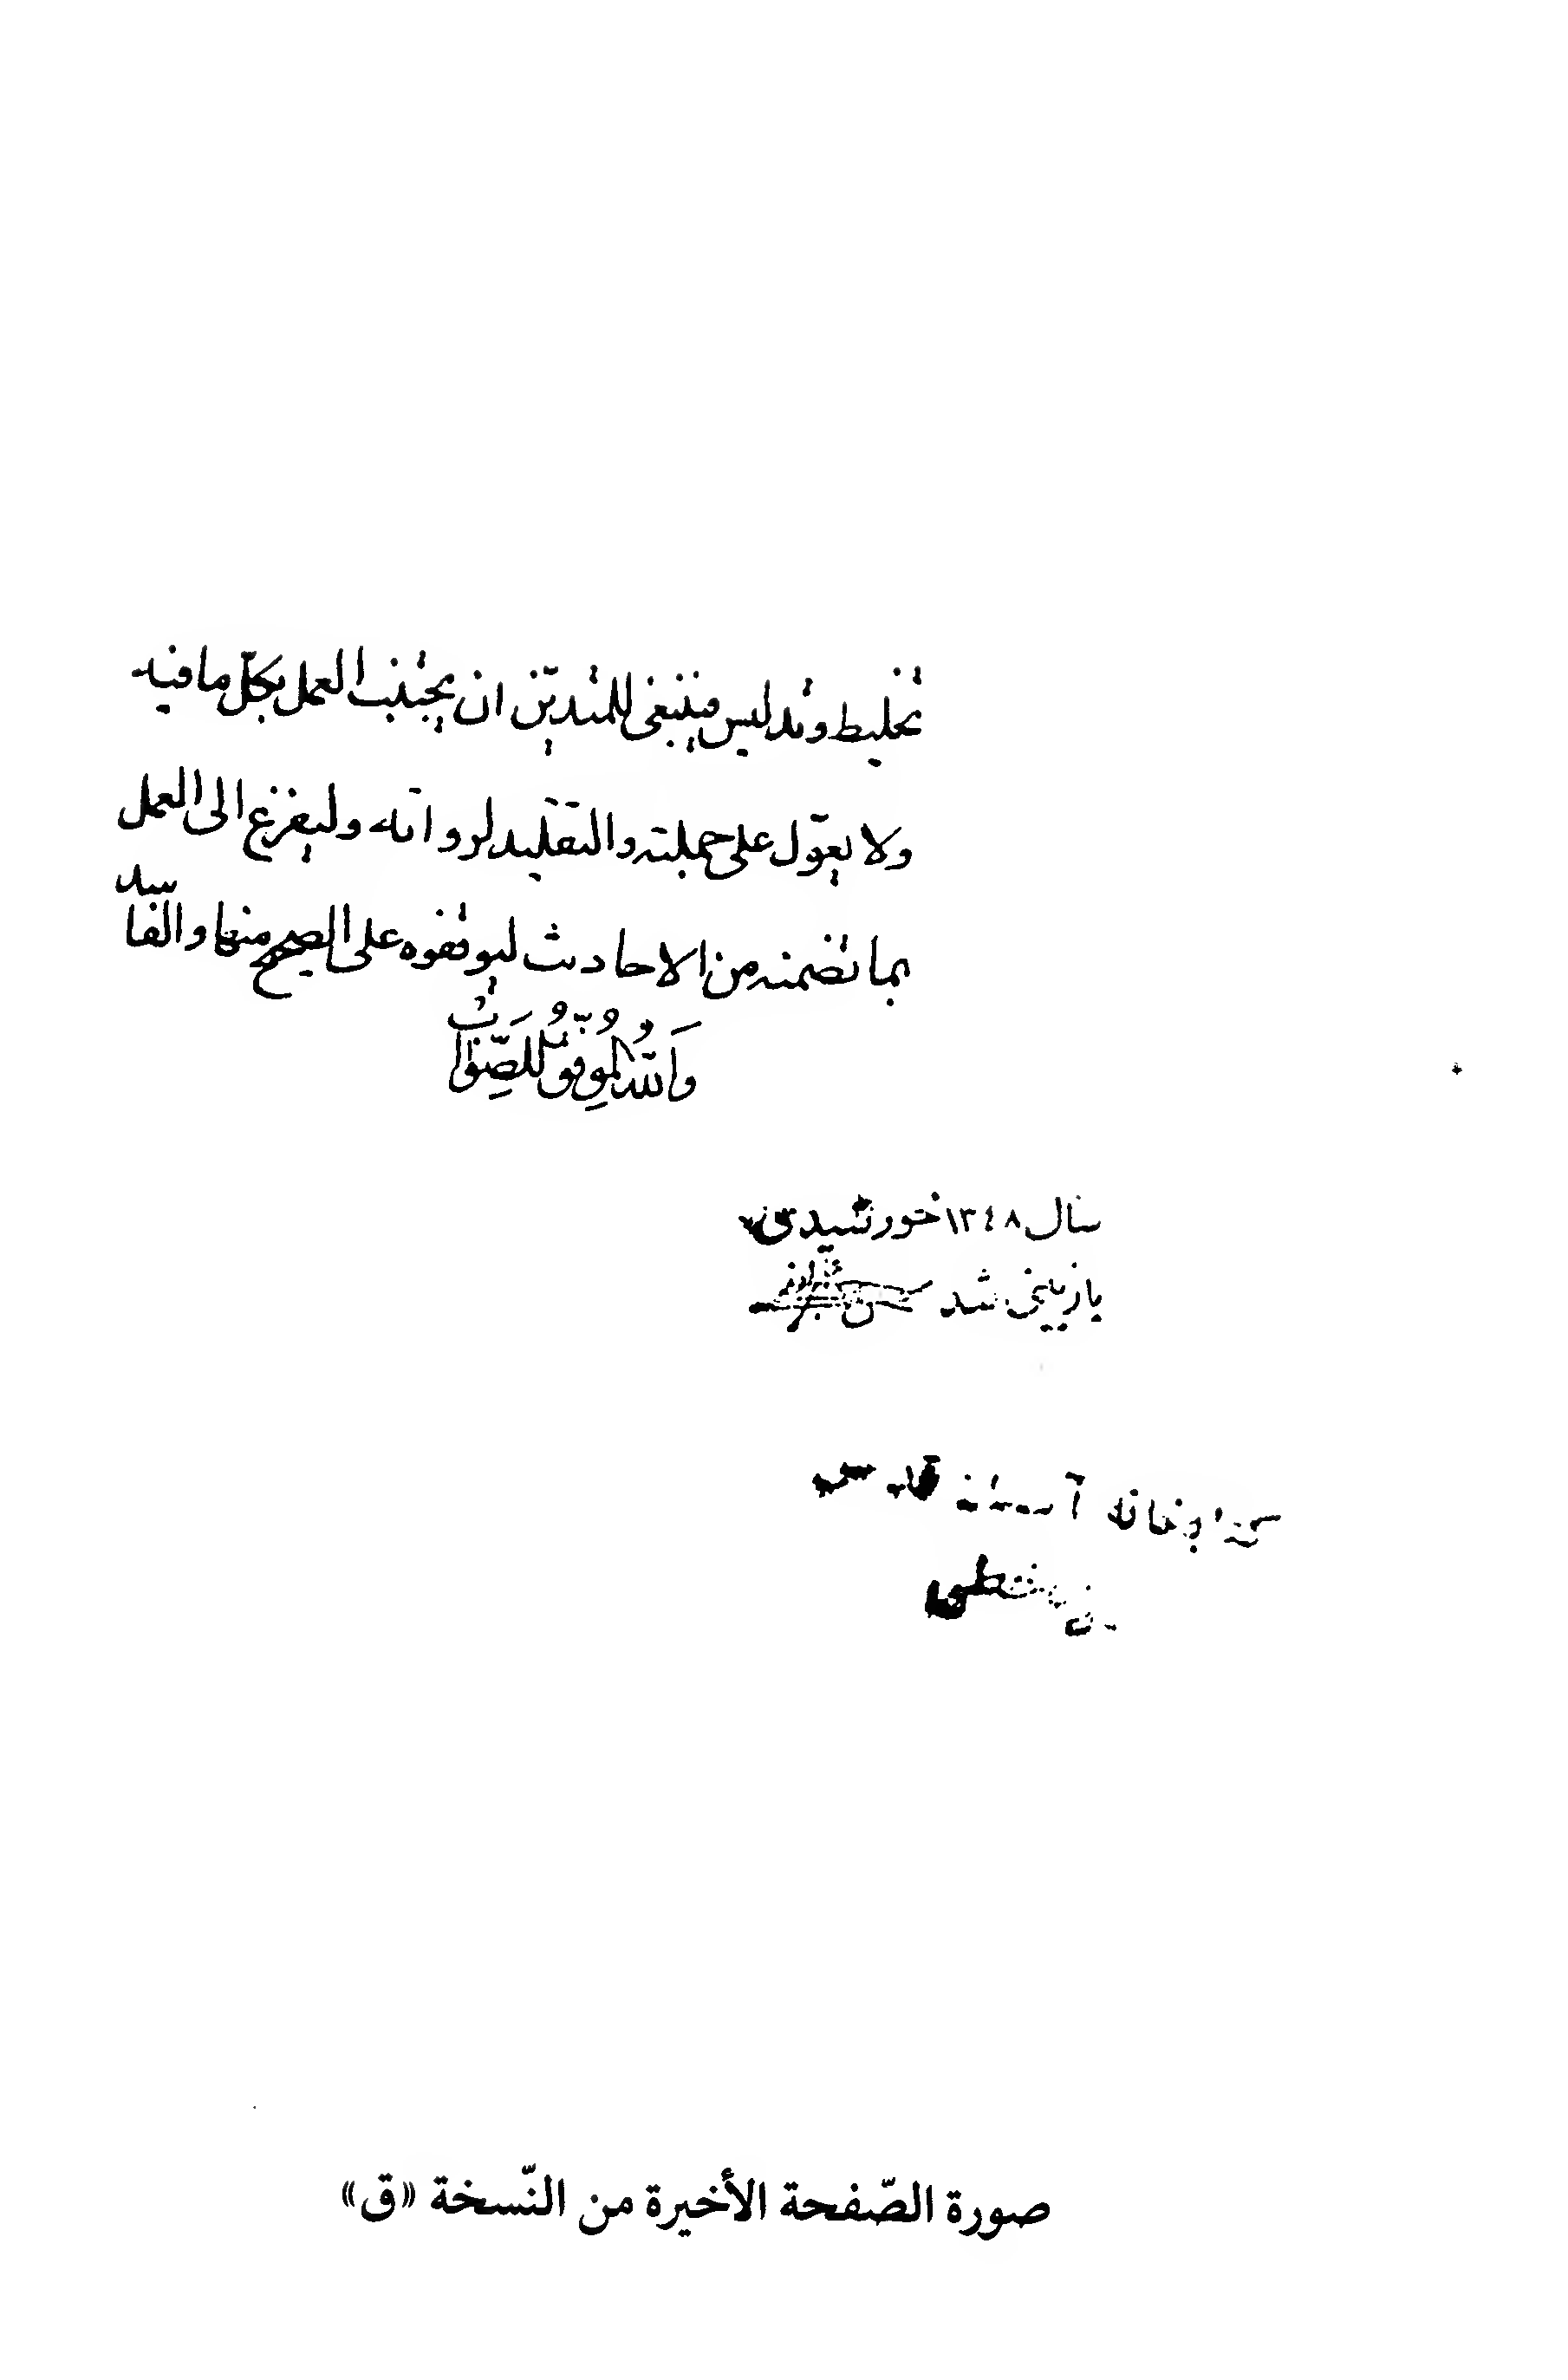 تخليط وتدليس فينبغى للمتديّن ان يجتنب العمل بكلّ ما فيه
ولا يعوّل على جملته والتقليد لرواته وليفزع الى العمل
بما تضمنه من الاحاديث ليوقفوه على الصحيح منها والفاسد
وَاللهُ المُوفِّقُ لِلصَّوَاب
سال ١٣٤٨ خورشیدی
بازبینی شد
کتابخانه آستانه قدس
صورة الصّفحة الأخيرة من النّسخة «ق»